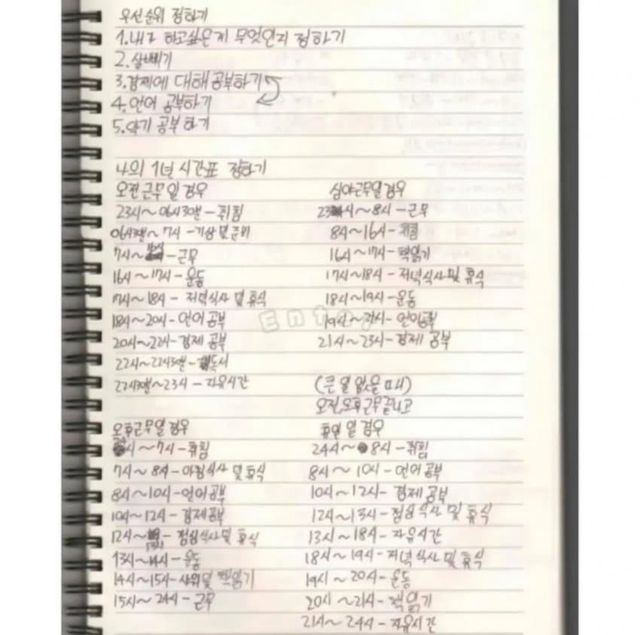 우선순위 정하기
1. 내가 하고싶은게 무엇인지 정하기
2. 살빼기
3. 경제에 대해 공부하기
4. 언어 공부하기
5. 악기 공부하기
나의 1년 시간표 정하기
오전 근무일 경우
23시~06시30분 - 취침
06시30분~7시 - 기상 및 준비
7시~ - 근무
16시~17시 - 운동
17시~18시 - 저녁식사 및 휴식
18시~20시 - 언어 공부
20시~22시 - 경제 공부
22시~22시30분 - 독서
22시30분~23시 - 자유시간
심야근무일 경우
23시~8시 - 근무
8시~16시 - 취침
16시~17시 - 책읽기
17시~18시 - 저녁식사 및 휴식
18시~19시 - 운동
19시~21시 - 언어공부
21시~23시 - 경제 공부
오후근무일 경우
~7시 - 취침
7시~8시 - 아침식사 및 휴식
8시~10시 - 언어공부
10시~12시 - 경제공부
12시~13시 - 점심식사 및 휴식
13시~14시 - 운동
14시~15시 - 샤워 및 책읽기
15시~24시 - 근무
(큰 일 없을 때)
오전,오후 근무 끝나고
휴일 일 경우
24시~8시 - 취침
8시~10시 - 언어 공부
10시~12시 - 경제 공부
12시~13시 - 점심식사 및 휴식
13시~18시 - 자유시간
18시~19시 - 저녁식사 및 휴식
19시~20시 - 운동
20시~21시 - 책읽기
21시~24시 - 자유시간